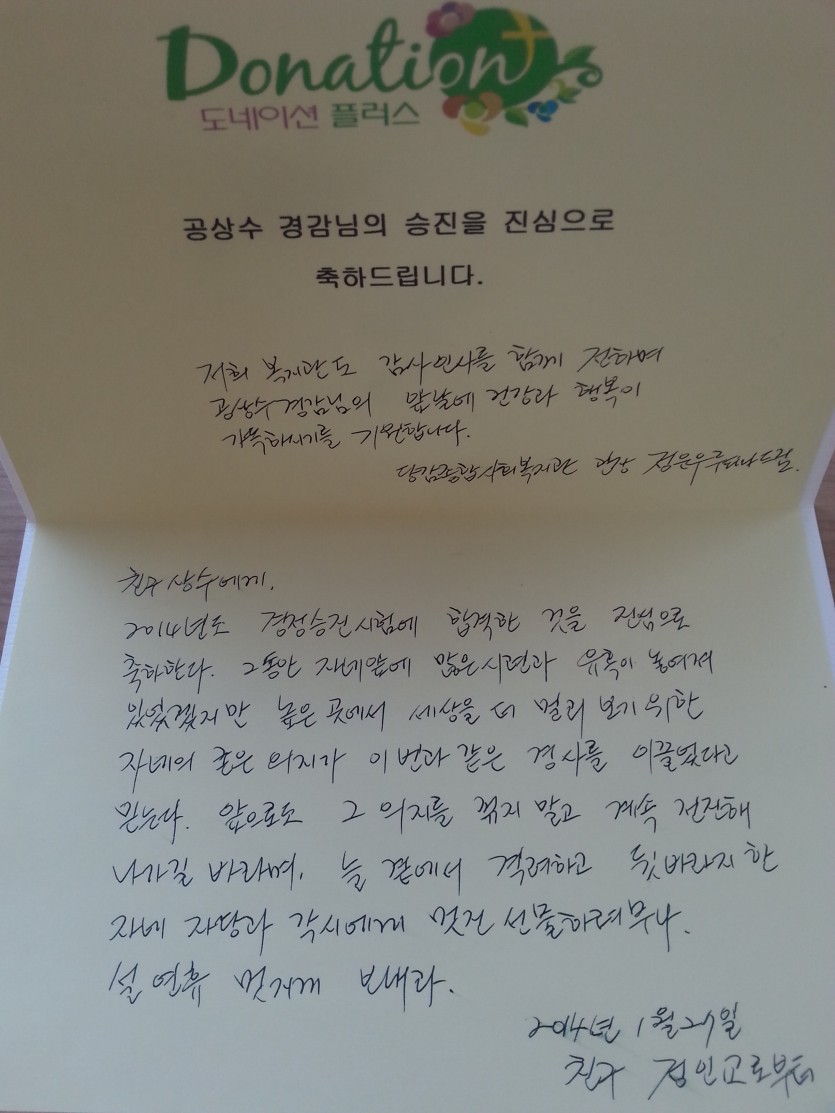 Donation
도네이션 플러스
공상수 경감님의 승진을 진심으로
축하드립니다.
저희 복지관도 감사인사를 함께 전하며
공상수경감님의 앞날에 건강과 행복이
가득하시기를 기원합니다.
당감종합사회복지관 관장 정은우루피나드림.
친구 상수에게.
2014년도 경정승진시험에 합격한 것을 진심으로
축하한다. 그동안 자네앞에 많은시련과 유혹이 놓여져
있었겠지만 높은 곳에서 세상을 더 멀리 보기위한
자네의 굳은 의지가 이번과 같은 경사를 이끌었다고
믿는다. 앞으로도 그 의지를 꺾지 말고 계속 전진해
나가길 바라며, 늘 곁에서 격려하고 뒷바라지한
자네 자당과 각시에게 멋진 선물하려무나.
설 연휴 멋지게 보내라.
2014년 1월 27일
친구 정인교로부터